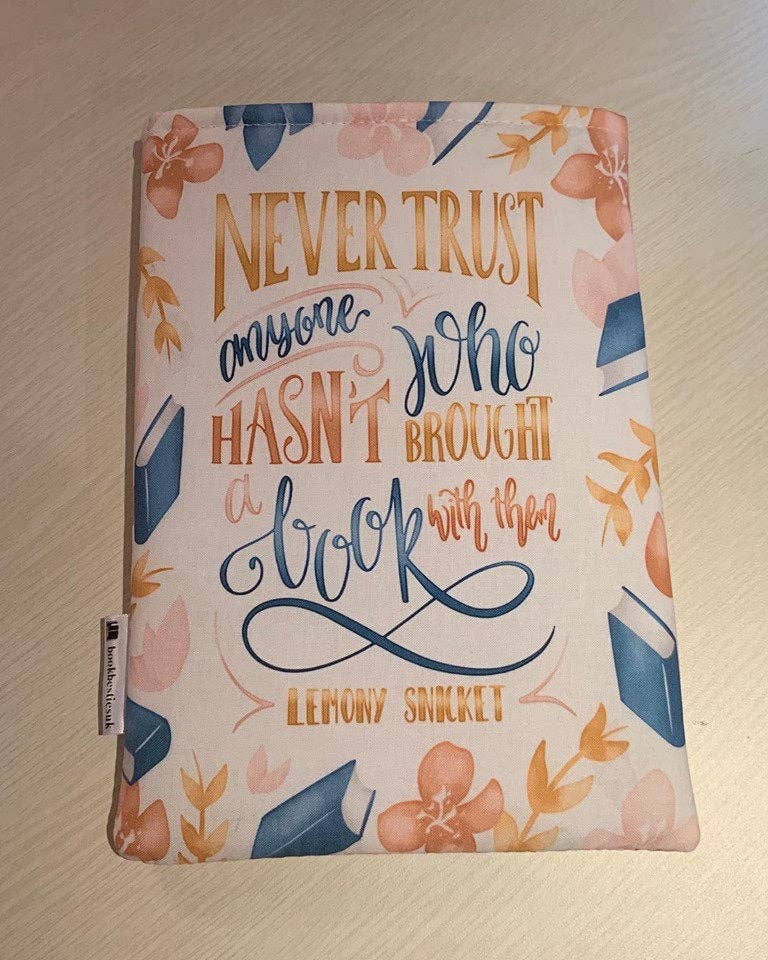 NEVER TRUST
anyone who
HASN'T BROUGHT
a book with them
LEMONY SNICKET
bookbestiesuk